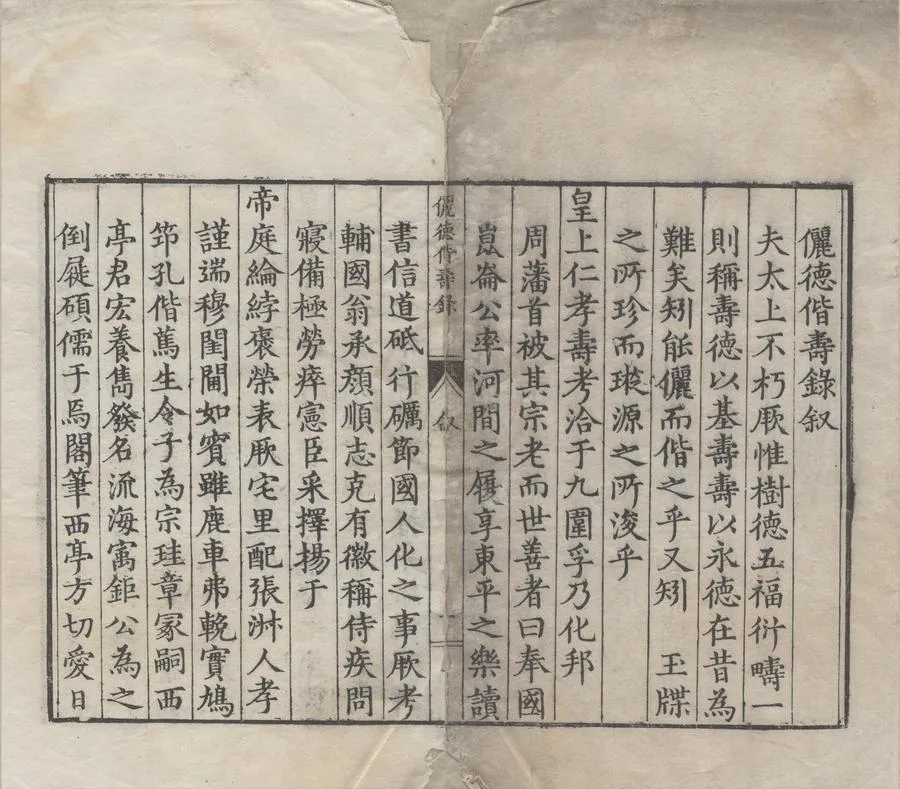 儷德偕壽錄叙
夫太上不朽厥惟樹德五福衍疇一
則稱壽德以基壽壽以永德在昔為
難矣矧能儷而偕之乎又矧 玉牒
之所珍而璇源之所浚乎
皇上仁孝壽考洽于九圍孚乃化邦
周藩首被其宗老而世善者曰奉國
崑崙公率河間之履享東平之樂讀
儷德偕壽錄 叙 一
書信道砥行礪節國人化之事厥考
輔國翁承顔順志克有徽稱侍疾問
寢備極勞瘁憲臣采擇揚于
帝庭綸綍褒榮表厥宅里配張淋人孝
謹端穆閨閫如賓雖鹿車弗輓實鳩
筇孔偕篤生令子為宗珪章冢嗣西
亭君宏養雋發名流海寓鉅公為之
倒屣碩儒于焉閣筆西亭方切愛日